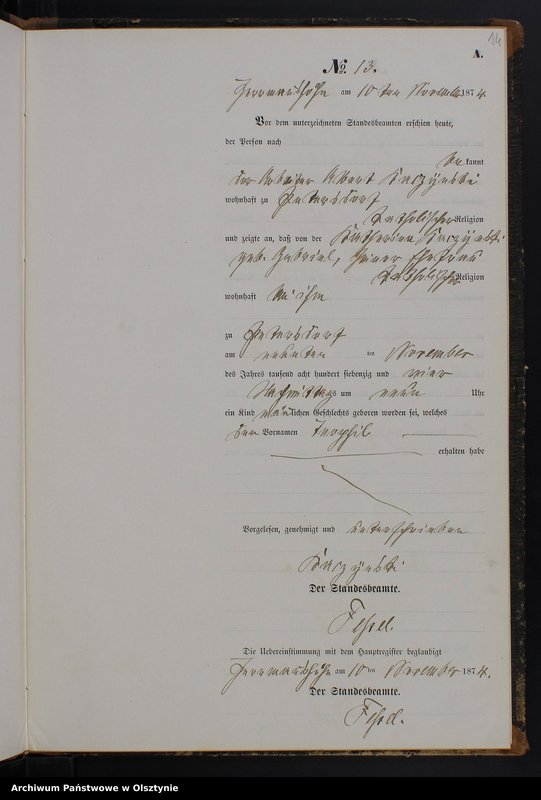 14
A.
No. 13.
Herrmannshöhe am 10 ten November 1874.
Vor dem unterzeichneten Standesbeamten erschien heute,
der Person nach
be kannt
der Arbeiter Albert
wohnhaft zu Petersdorf
katholischer Religion
und zeigte an, daß von der Katharina
geb. Gabriel, seiner Ehefrau
katholischer Religion
wohnhaft bei ihm
zu Petersdorf
am neunten ten November
des Jahres tausend acht hundert siebenzig und vier
Nachmittags um neun Uhr
ein Kind männlichen Geschlechts geboren worden sei, welches
den Vornamen Teophil
erhalten habe
Vorgelesen, genehmigt und unterschrieben
Der Standesbeamte.
Die Uebereinstimmung mit dem Hauptregister beglaubigt
Herrmannshöhe am 10 ten November 1874.
Der Standesbeamte.
Archiwum Państwowe w Olsztynie